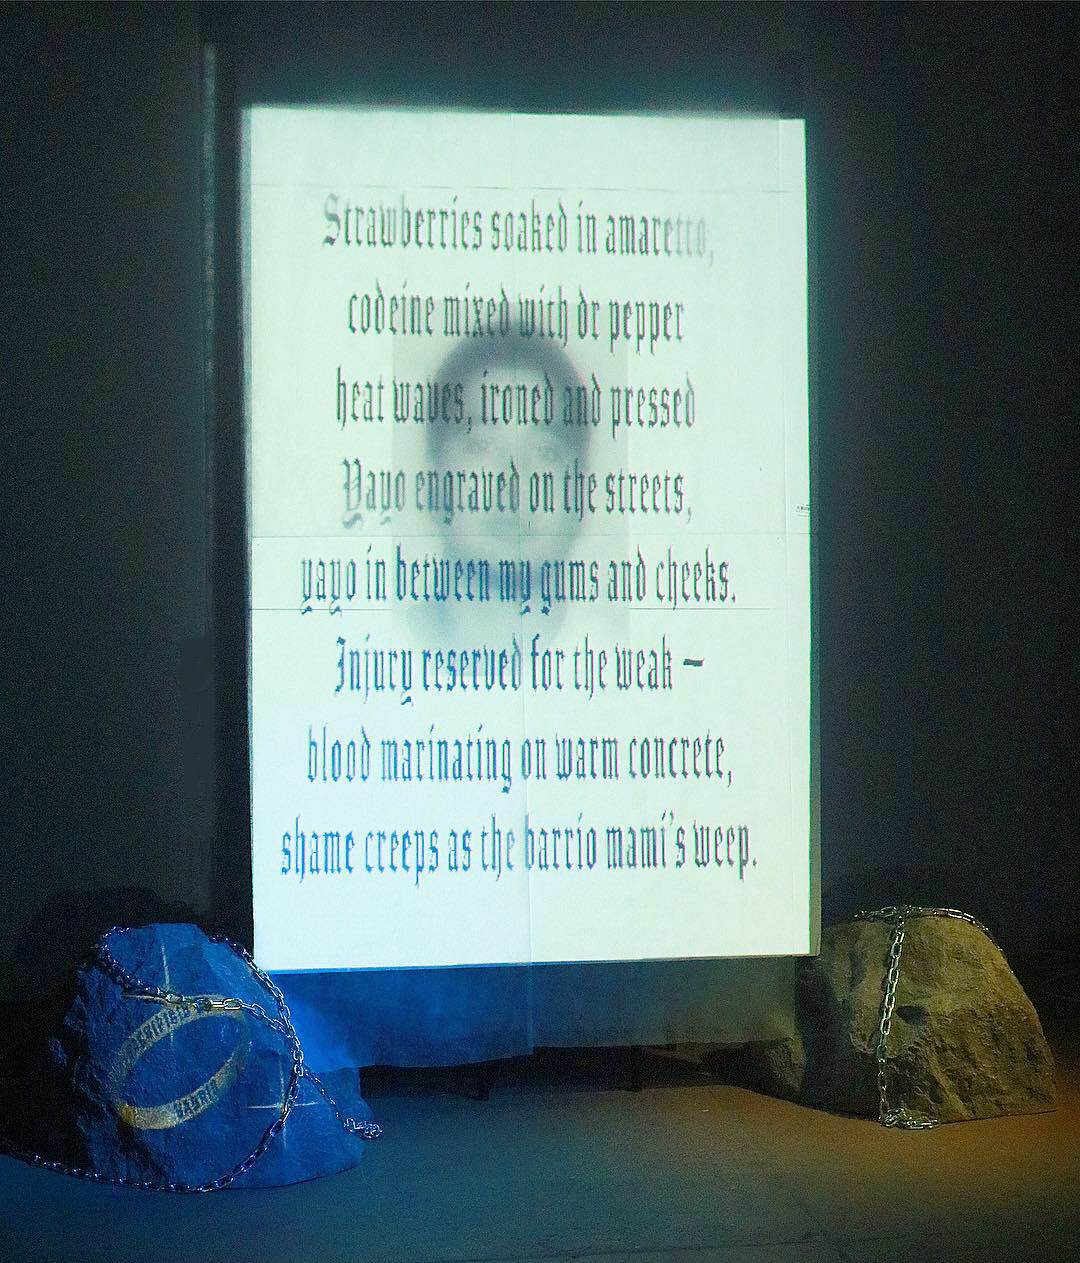 Strawberries soaked in amaretto,
codeine mixed with dr pepper
heat waves, ironed and pressed
Yayo engraved on the streets,
yayo in between my gums and cheeks.
Injury reserved for the weak –
blood marinating on warm concrete,
shame creeps as the barrio mami's weep.